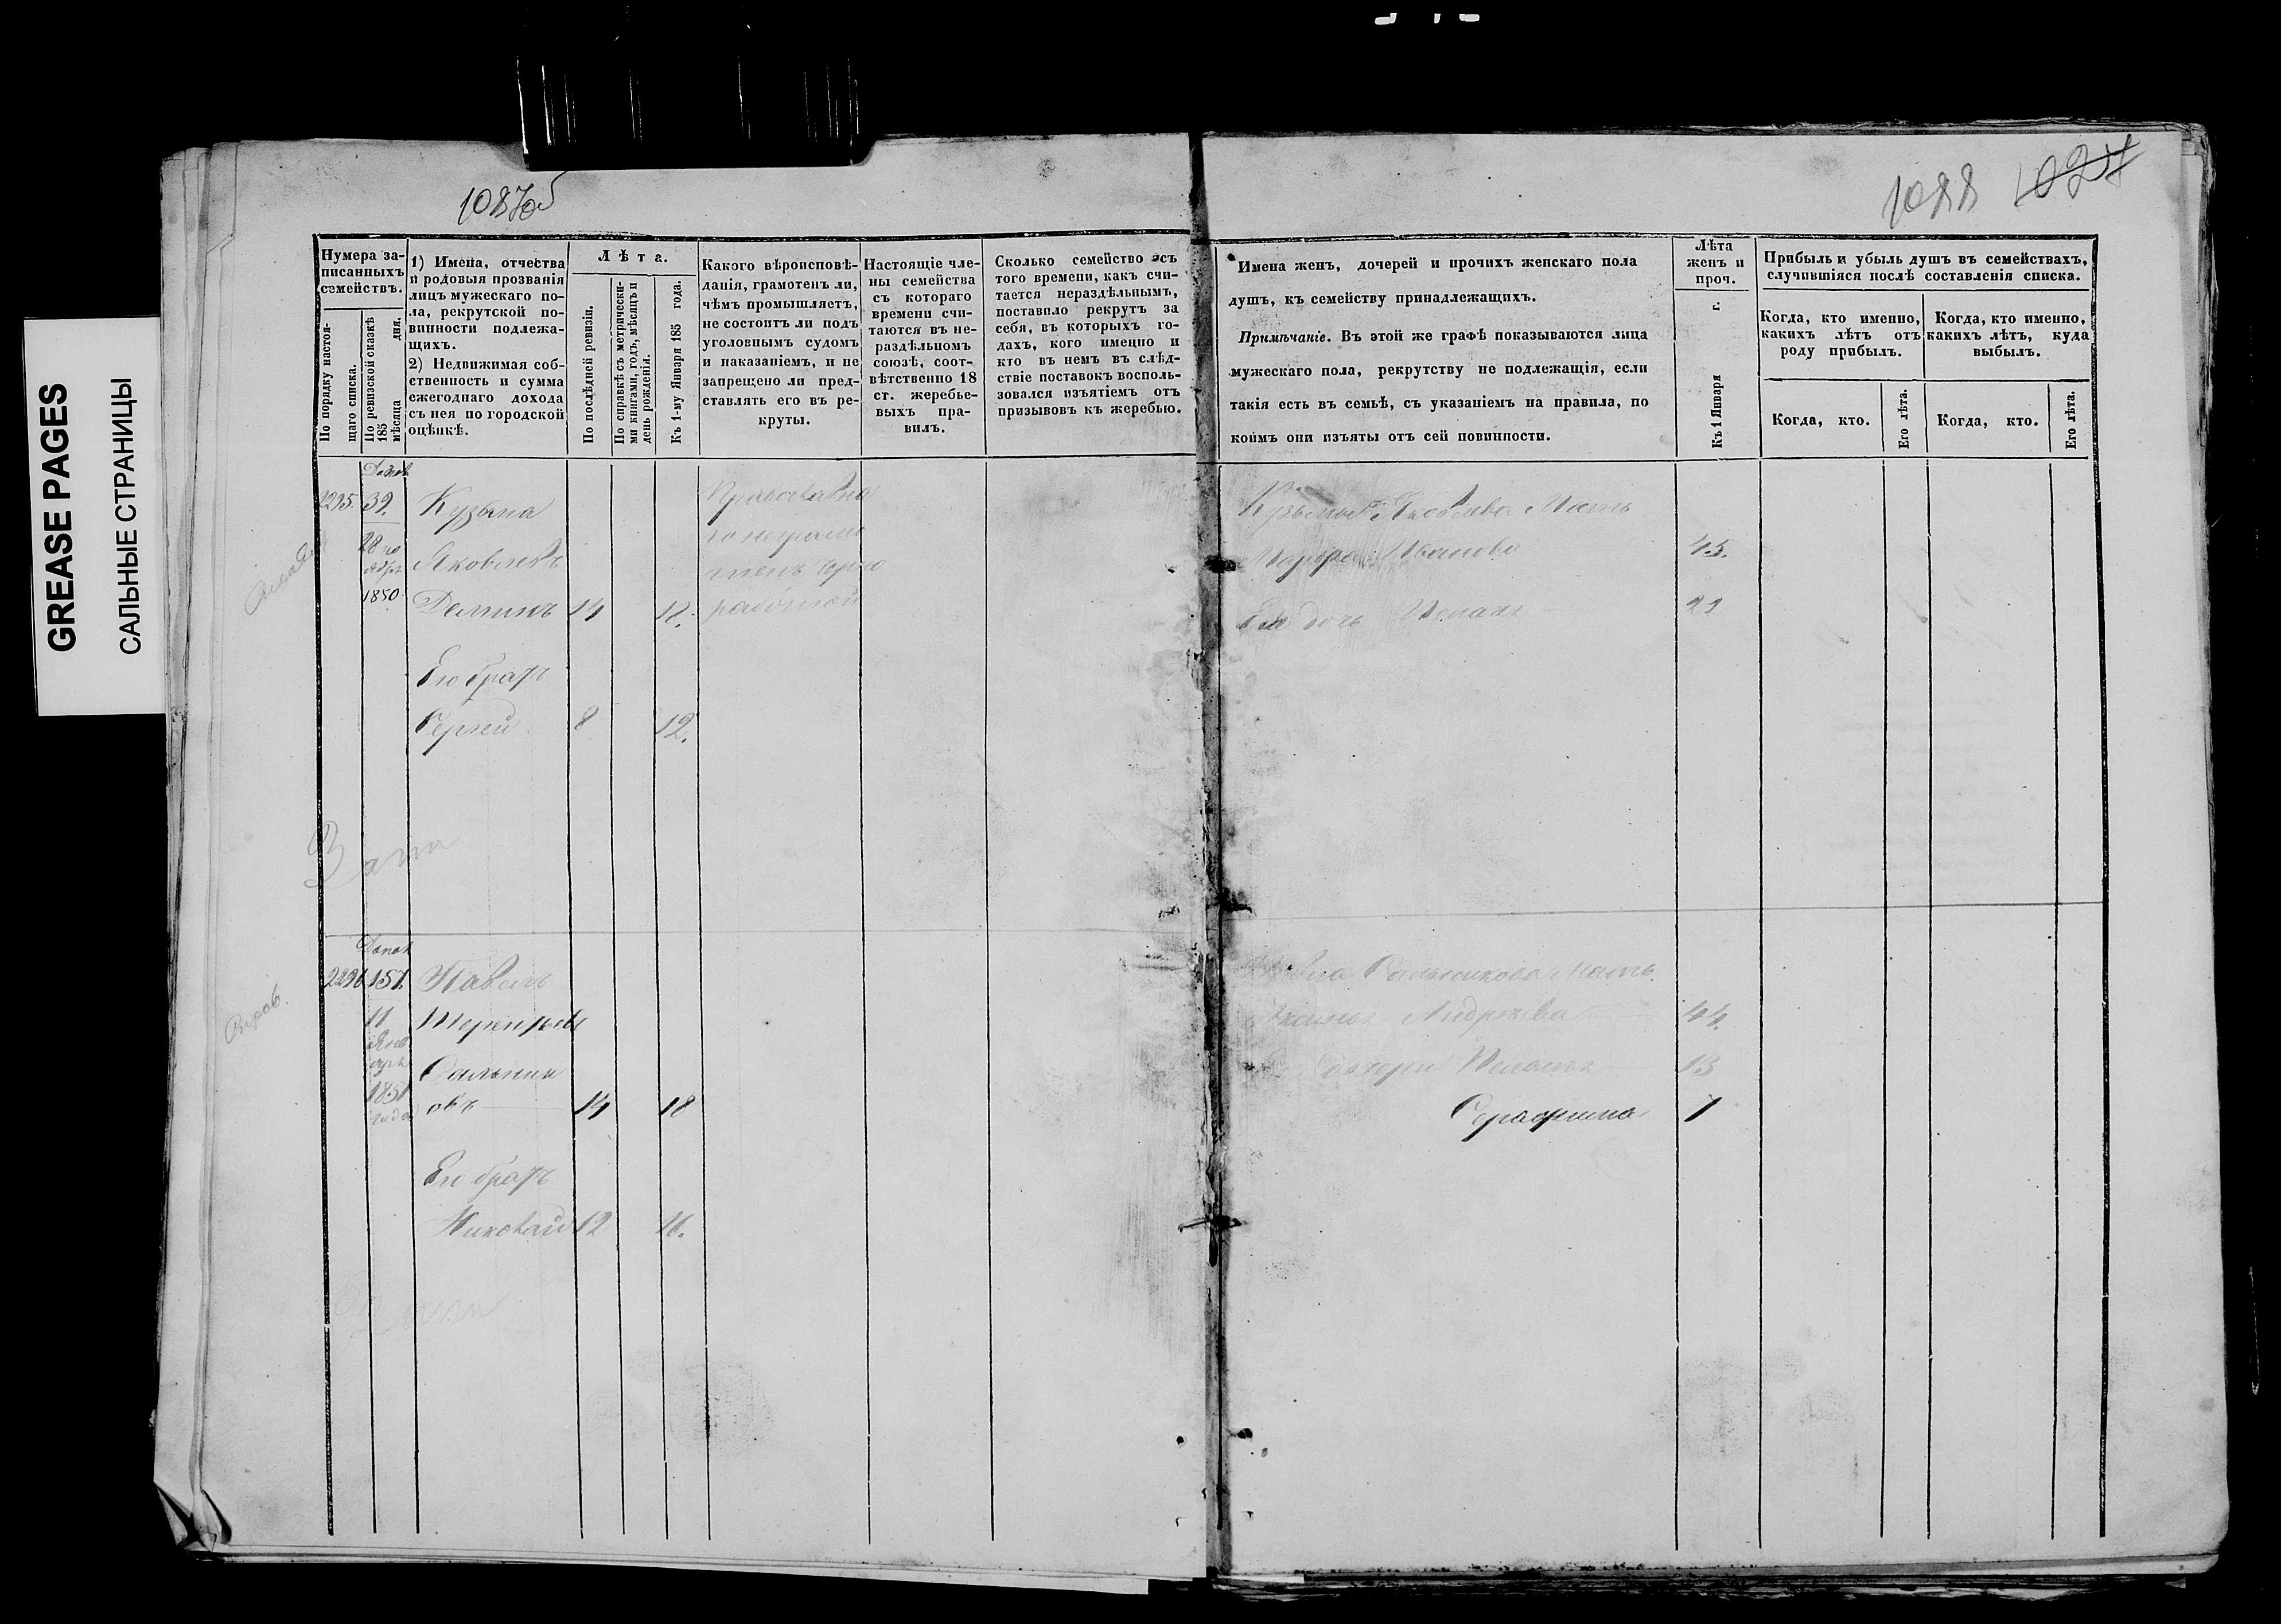 GREASE PAGES
САЛЬНЫЕ СТРАНИЦЫ
1087об
Нумера за-
писанныхъ
семействъ.
По порядку настоя-
щаго списка.
По ревизской сказкѣ
185 дня.
мѣсяца
1) Имена, отчества
и родовыя прозванія
лицъ мужескаго по-
ла, рекрутской по-
винности подлежа-
щихъ.
2) Недвижимая соб-
ственность и сумма
ежегоднаго дохода
съ нея по городской
оцѣнкѣ.
Лѣта.
По послѣдней ревизіи.
По справкѣ съ метрически-
ми книгами, годъ, мѣсяцъ и
день рожденія.
Къ 1-му Января 185 года.
Какого вѣроисповѣ-
данія, грамотенъ ли,
чѣмъ промышляетъ,
не состоитъ ли подъ
уголовнымъ судомъ
и наказаніемъ, и не
запрещено ли пред-
ставлять его въ ре-
круты.
Настоящіе чле-
ны семейства
съ котораго
времени счи-
таются въ не-
раздѣльномъ
союзѣ, соот-
вѣтственно 18
ст. жеребье-
выхъ пра-
вилъ.
Сколько семейство съ
того времени, какъ счи-
тается нераздѣльнымъ,
поставило рекрутъ за
себя, въ которыхъ го-
дахъ, кого именно и
кто въ немъ въ слѣд-
ствіе поставокъ восполь-
зовался изъятіемъ отъ
призывовъ къ жеребью.
2295. 39.
28 но
ября
1850
Кузьма
Яковлевъ
14 18.
Его братъ
Сергей 8 12.
Православна
го неграмо
тенъ черно
работой
2296 157.
11
Янв
аря
1851
года
Павелъ
Терентьевъ
Сальник
овъ 14 18
Его братъ
Николай 12 16.
1088 1021
Имена женъ, дочерей и прочихъ женскаго пола
душъ, къ семейству принадлежащихъ.
Примѣчаніе. Въ этой же графѣ показываются лица
мужескаго пола, рекрутству не подлежащія, если
такія есть въ семьѣ, съ указаніемъ на правила, по
коимъ они изъяты отъ сей повинности.
Лѣта
женъ и
проч.
Къ 1 Января г.
Прибыль и убыль душъ въ семействахъ,
случившіяся послѣ составленія списка.
Когда, кто именно,
какихъ лѣтъ отъ
роду прибылъ.
Когда, кто именно,
какихъ лѣтъ, куда
выбылъ.
Когда, кто.
Его лѣта.
Когда, кто.
Его лѣта.
Кузьмы Яковлева Мать
Марфа Иванова 45.
Ея дочь Пелагея 21
Павла Сальникова Мать
Аксинья Андреева 44.
дочери Пелагея 13
Серафима 7